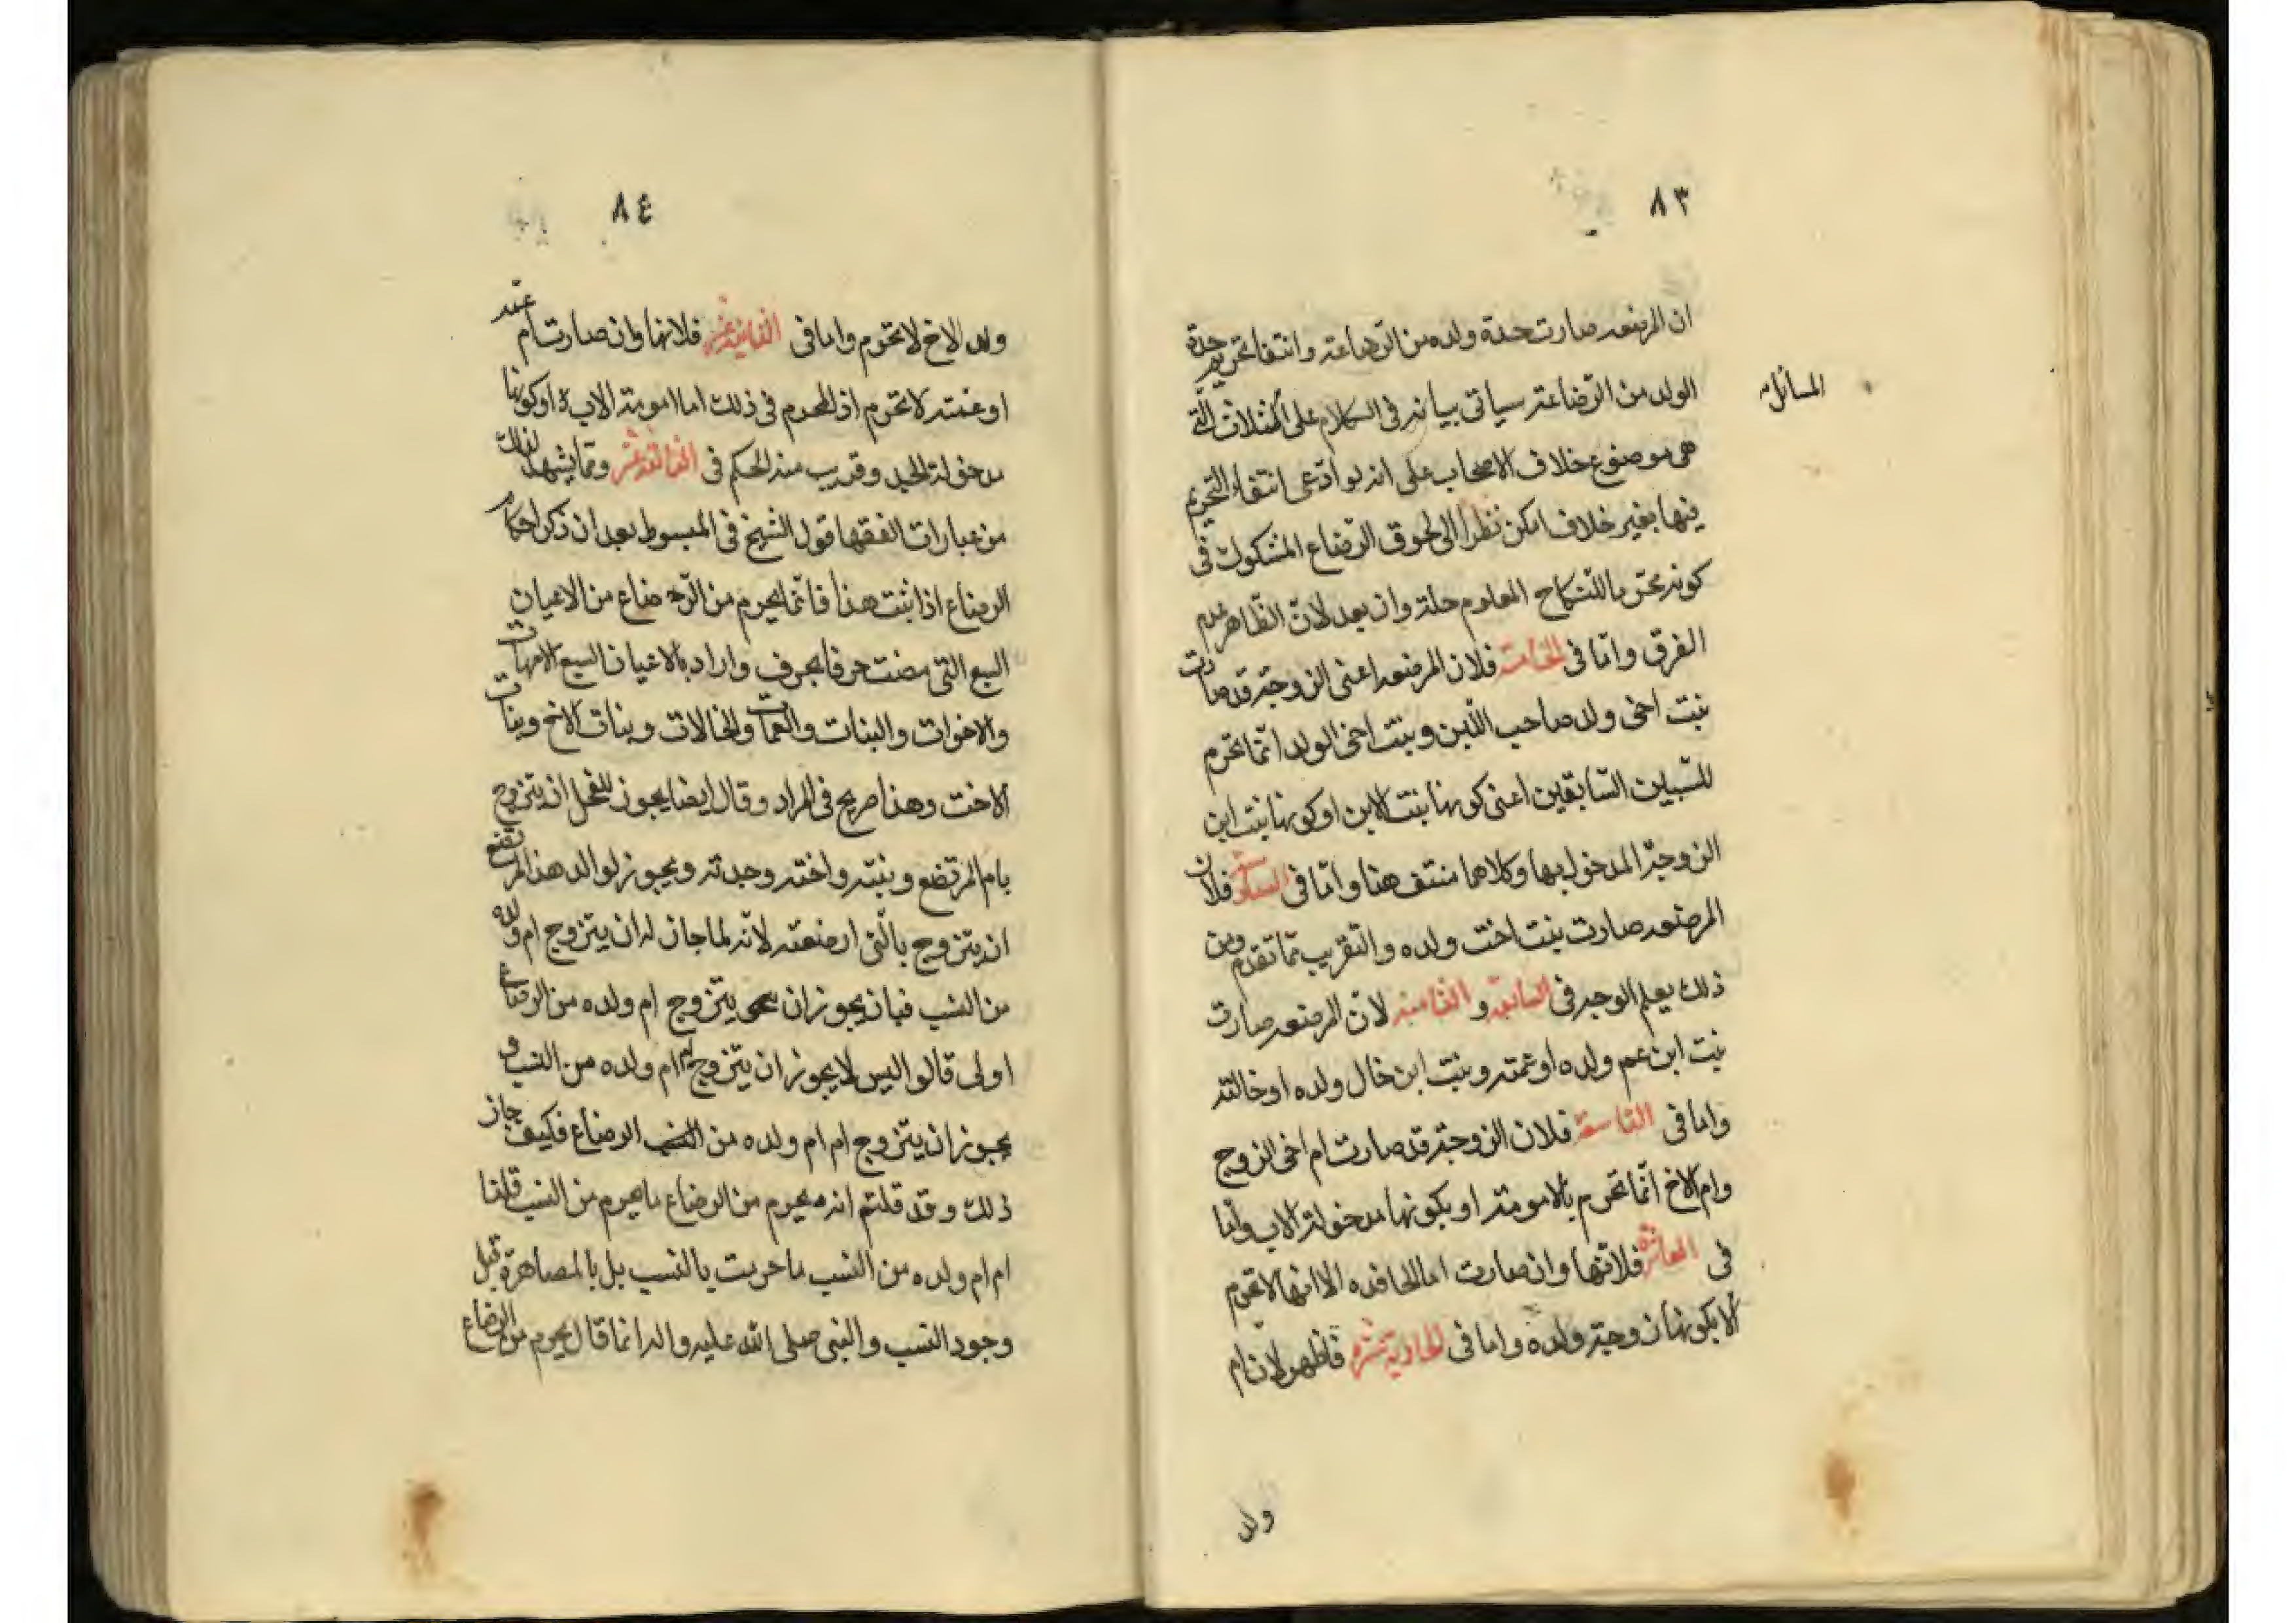 ٨٣
ان المرضعه صارت جدة ولده من الرضاعة وانتفا تحريم جدة
الولد من الرضاعة سياتى بيانه فى الكلام على الثلاث التى
المسائل
هى موضوع خلاف الاصحاب على انه لو ادعى انتفاء التحريم
فيها بغير خلاف امكن نظرا الى لحوق الرضاع المشكوك فى
كونه محرما بالنكاح المعلوم حلة وان بعد لان الظاهر عدم
الفرق وامّا فى الخامسة فلان المرضعه اعنى الزوجة قد صارت
بنت اخى ولد صاحب اللبن وبنت اخى الولد انّما تحرم
للسّببين السّابقين اعنى كونها بنت الابن او كونها بنت ابن
الزوجة المدخول بها وكلاهما منتف هنا وامّا فى السادسة فلان
المرضعه صارت بنت اخت ولده والتقريب ممّا تقدم ومن
ذلك يعلم الوجه فى السابعة و الثامنه لانّ المرضعه صارت
بنت ابن عم ولده او عمته وبنت ابن خال ولده او خالته
واما فى التاسعة فلان الزوجة قد صارت ام اخى الزوج
وام الاخ انّما تحرم بالامومة او بكونها مدخولة الاب وامّا
فى العاشرة فلانّها وان صارت اما لحافده الا انها لا تحرم
الا بكونها زوجة ولده واما فى الحادية عشرة فاظهر لان ام
ولد
٨٤
ولد الاخ لا تحرم واما فى الثانية عشر فلانها وان صارت ام عمه
او عمته لا تحرم اذ المحرم فى ذلك اما امومة الاب او كونها
مدخولة الجد وقريب منه الحكم فى الثالثة عشر وممّا يشهد لذلك
من عبارات الفقها قول الشيخ فى المبسوط بعد ان ذكر احكام
الرضاع اذا ثبت هذا فانّما يحرم من الرّضاع من الاعيان
السبع التى مضت حرفا بحرف واراد بالاعيان السبع الامهات
والاخوات والبنات والعمات والخالات وبنات الاخ وبنات
الاخت وهذا صريح فى المراد وقال ايضا يجوز للفحل ان يتزوج
بام المرتضع وبنته واخته وجدته ويجوز لوالد هذا المرتضع
ان يتزوج بالّتى ارضعته لانّه لما جاز له ان يتزوج ام ولده
من النسب فبان يجوز ان يتزوج ام ولده من الرضاع
اولى قالوا اليس لا يجوز ان يتزوج ام ام ولده من النسب و
يجوز ان يتزوج ام ام ولده من الرضاع فكيف جاز
ذلك وقد قلتم انه يحرم من الرضاع ما يحرم من النسب قلنا
ام ام ولده من النسب ما حرمت بالنسب بل بالمصاهرة قبل
وجود النسب والنبى صلى الله عليه واله انما قال يحرم من الرضاع